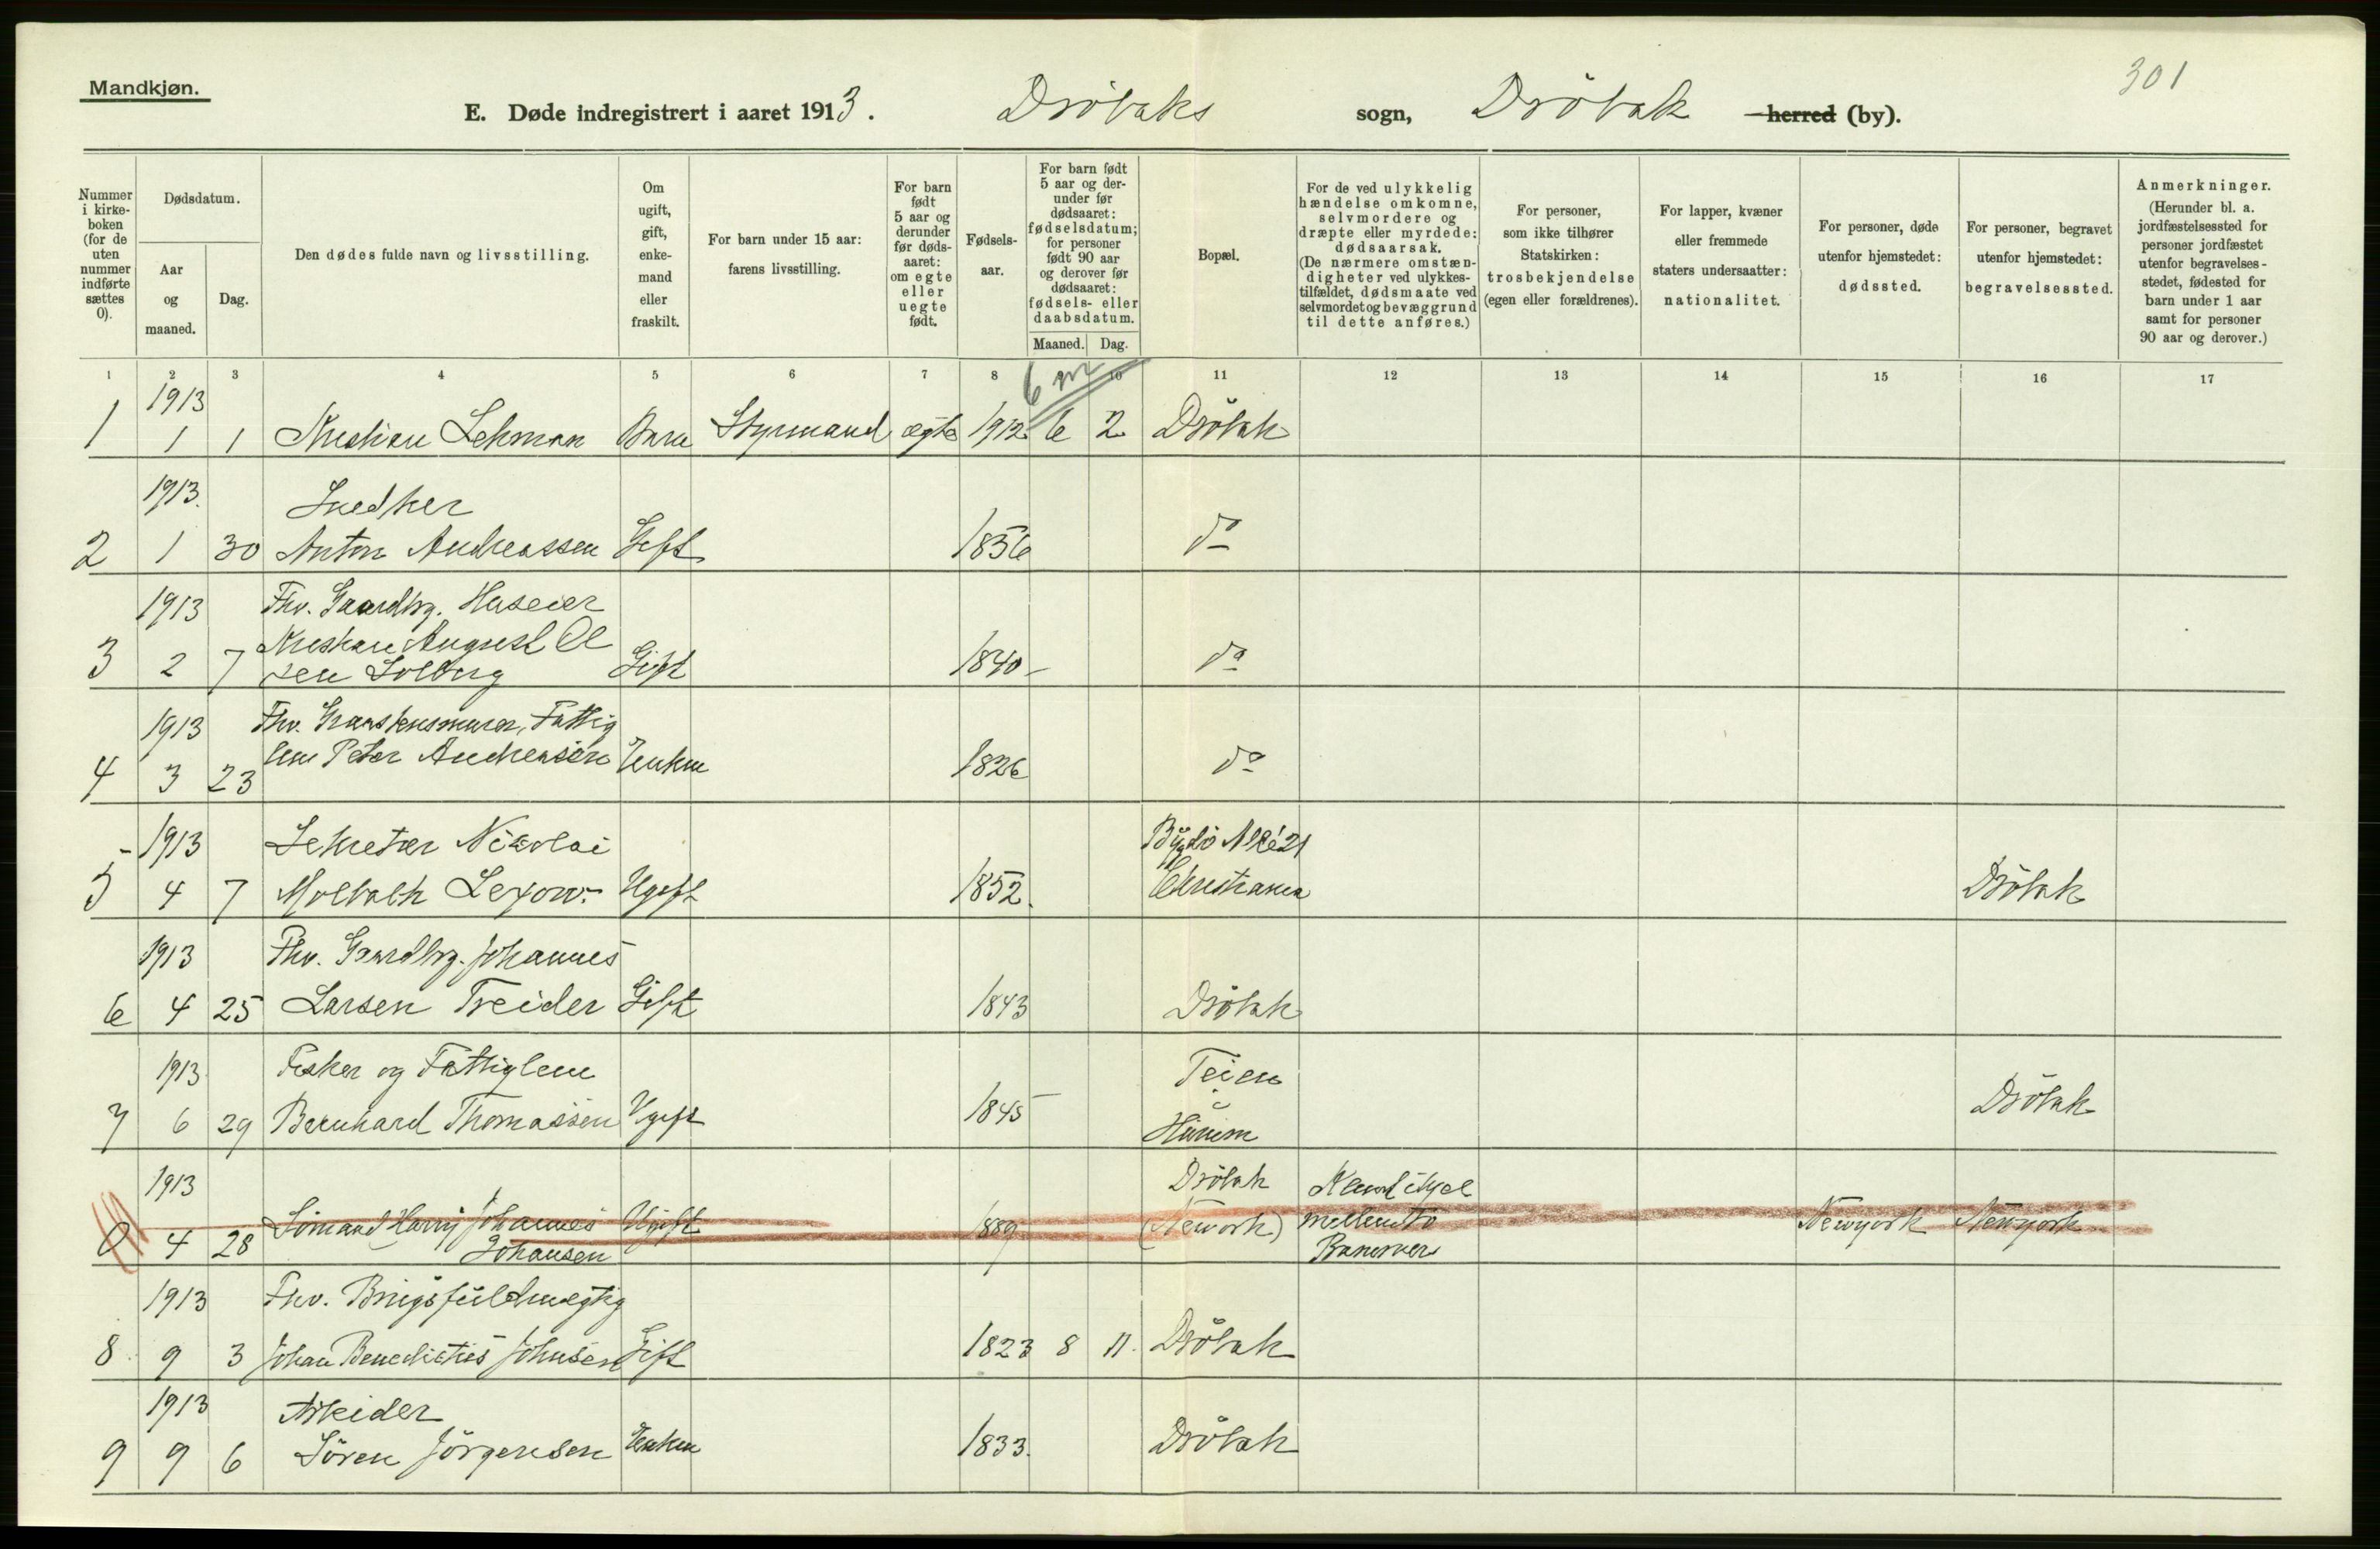 Mandkjøn.
301
E. Døde indregistrert i aaret 1913. Drøbaks sogn, Drøbak herred (by).
Nummer i kirke-boken (for de uten nummer indførte sættes 0).
Dødsdatum.
Aar og maaned.
Dag.
Den dødes fulde navn og livsstilling.
Om ugift, gift, enke-mand eller fraskilt.
For barn under 15 aar: farens livsstilling.
For barn født 5 aar og derunder før døds-aaret: om egte eller uegte født.
Fødsels-aar.
For barn født 5 aar og der-under før dødsaaret: fødselsdatum; for personer født 90 aar og derover før dødsaaret: fødsels- eller daabsdatum.
Maaned. Dag.
Bopæl.
For de ved ulykkelig hændelse omkomne, selvmordere og dræpte eller myrdede: dødsaarsak. (De nærmere omstæn-digheter ved ulykkes-tilfældet, dødsmaate ved selvmordet og bevæggrund til dette anføres.)
For personer, som ikke tilhører Statskirken: trosbekjendelse (egen eller forældrenes).
For lapper, kvæner eller fremmede staters undersaatter: nationalitet.
For personer, døde utenfor hjemstedet: dødssted.
For personer, begravet utenfor hjemstedet: begravelsessted.
Anmerkninger. (Herunder bl. a. jordfæstelsessted for personer jordfæstet utenfor begravelses-stedet, fødested for barn under 1 aar samt for personer 90 aar og derover.)
1 2 3 4 5 6 7 8 9 10 11 12 13 14 15 16 17
1913 6 m
1 1 1 Kristian Lehman Barn Styrmand ægte 1912 6 2 Drøbak
1913. Snedker
2 1 30 Anton Andreassen Gift 1836 do
1913 Fhv. Gaardbrg. Huseier
Kristian August Ol
3 2 7 sen Solberg Gift 1840 do
1913 Fhv. Graastensmurer, Fattig
lem Peter Andreasen Enkm
4 3 23 1826 do
1913 Sekretær Nicolai Bygdø Allé 21
5 4 7 Molbach Lexow Ugift 1852. Christiania Drøbak
1913 Fhv. Gaardbrg. Johannes
6 4 25 Larsen Treider Gift 1843 Drøbak
1913 Fisker og Fattiglem Teien
7 6 29 Bernhard Thomassen Ugift 1845 i Hurum Drøbak
1913 Drøbak Klemt ihjel
Sømand Harry Johannes Ugift 1889 (Newyork) mellem to Newyork Newyork
0 4 28 Johansen
1913 Fhv. Brugsfuldmægtig
8 9 3 Johan Benedictus Johnsen Gift 1823 8 11. Drøbak
1913 Arbeider
9 9 6 Søren Jørgensen Enkm 1833. Drøbak